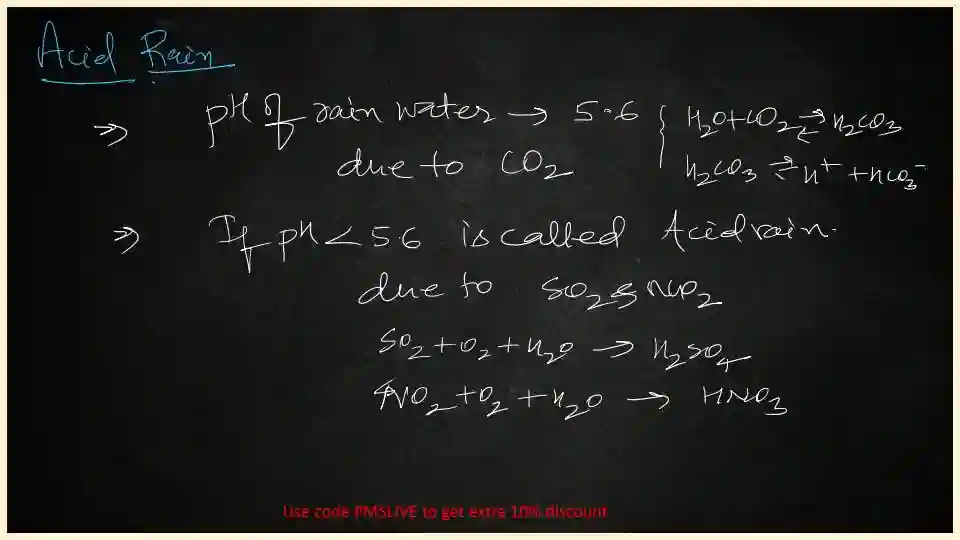 Acid Rain
⇒ pH of rain water → 5.6 { H2O+CO2 ⇌ H2CO3
due to CO2 H2CO3 ⇌ H+ + HCO3-
⇒ If pH < 5.6 is called Acid rain.
due to SO2 & NO2
SO2 + O2 + H2O → H2SO4
4NO2 + O2 + H2O → HNO3
Use code PMSLIVE to get extra 10% discount